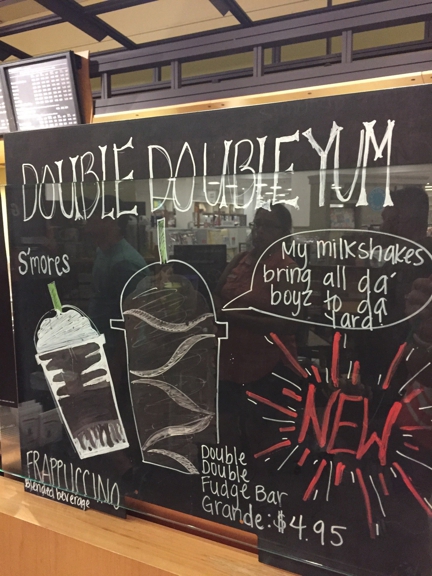 DOUBLE DOUBLE YUM
S'mores
My milkshakes
bring all da'
boyz to da
Yard!
NEW
FRAPPUCCINO
blended beverage
Double
Double
Fudge Bar
Grande: $4.95